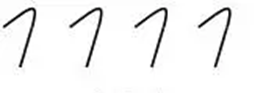 1 1 1 1